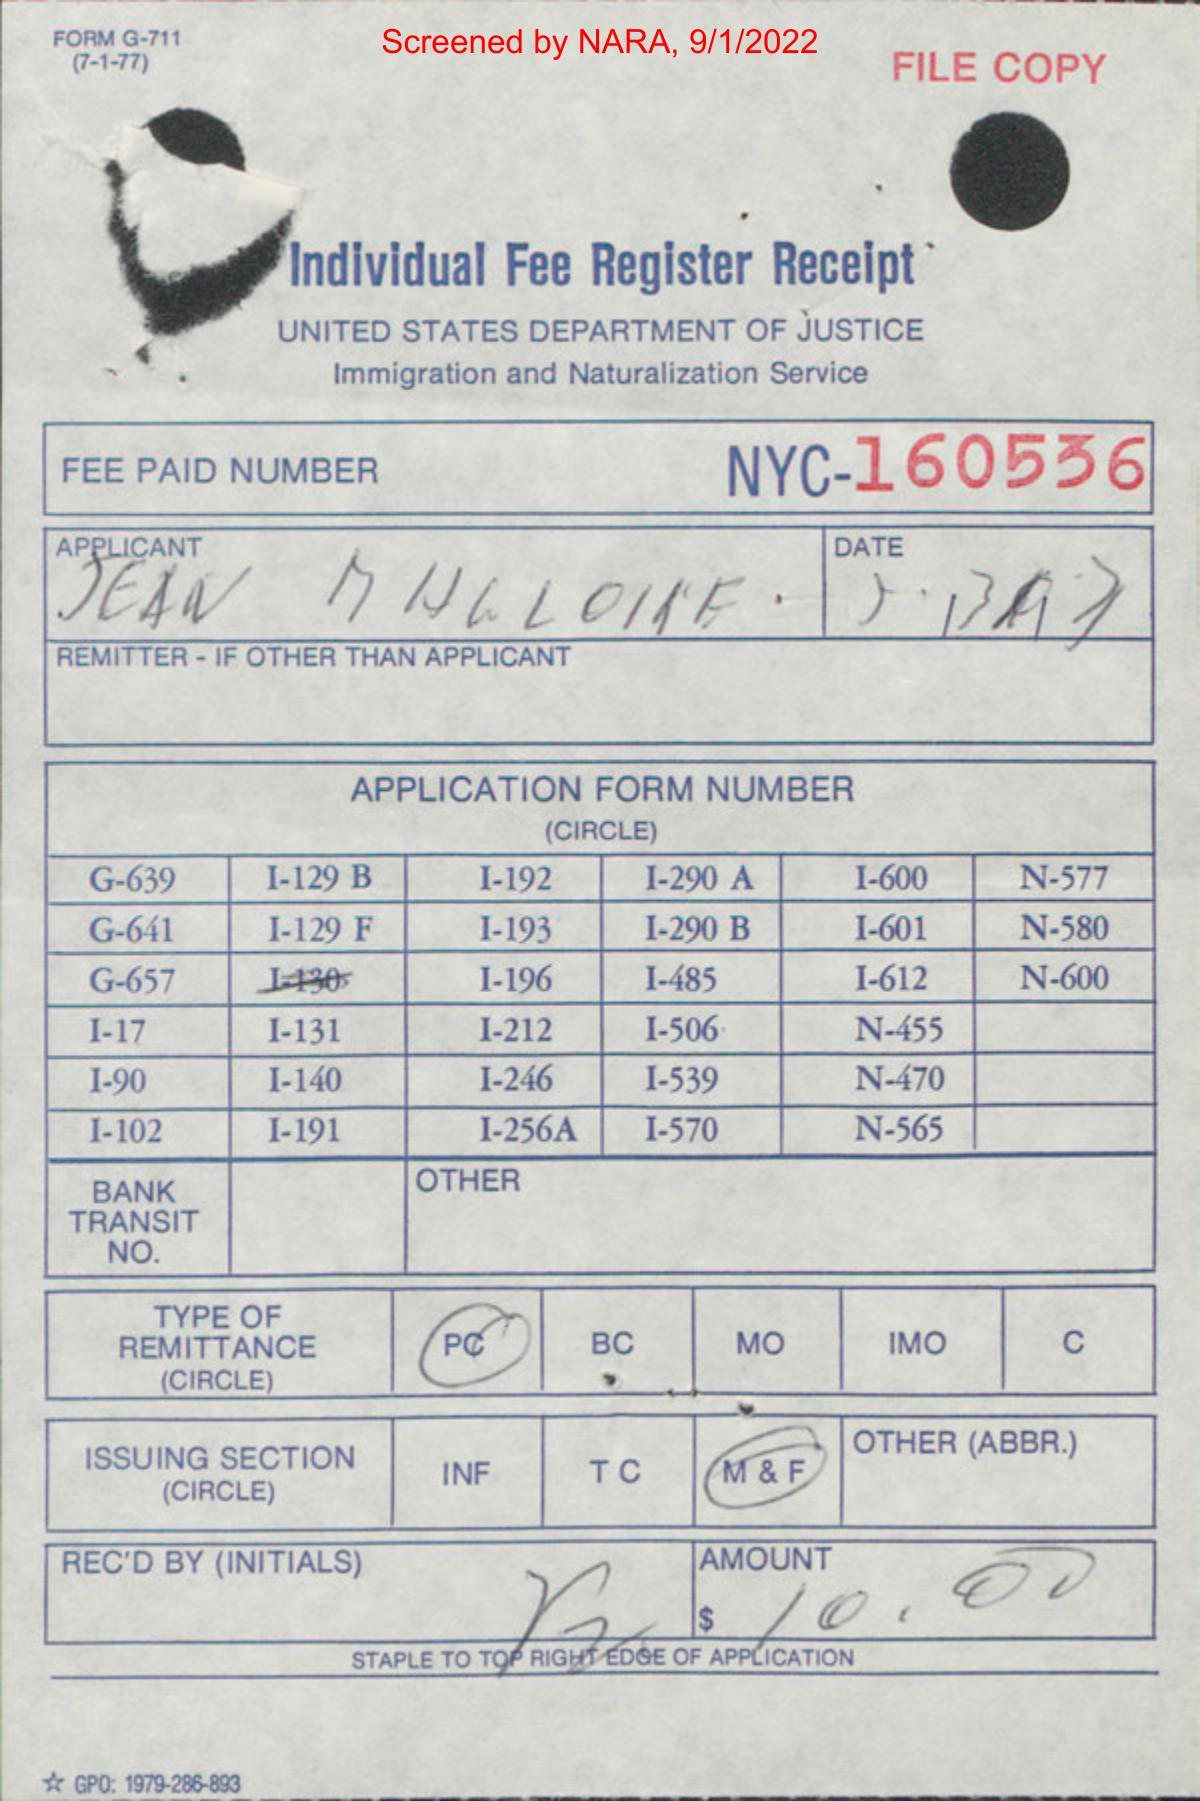 FORM G-711
(7-1-77)
Screened by NARA, 9/1/2022
FILE COPY
Individual Fee Register Receipt
UNITED STATES DEPARTMENT OF JUSTICE
Immigration and Naturalization Service
FEE PAID NUMBER NYC-160536
APPLICANT DATE
JEAN MAGLOIRE
REMITTER - IF OTHER THAN APPLICANT
APPLICATION FORM NUMBER
(CIRCLE)
G-639 I-129 B I-192 I-290 A I-600 N-577
G-641 I-129 F I-193 I-290 B I-601 N-580
G-657 I-130 I-196 I-485 I-612 N-600
I-17 I-131 I-212 I-506 N-455
I-90 I-140 I-246 I-539 N-470
I-102 I-191 I-256A I-570 N-565
BANK TRANSIT NO. OTHER
TYPE OF REMITTANCE (CIRCLE) PC BC MO IMO C
ISSUING SECTION (CIRCLE) INF T C M & F OTHER (ABBR.)
REC'D BY (INITIALS) AMOUNT
$ 10.00
STAPLE TO TOP RIGHT EDGE OF APPLICATION
☆ GPO: 1979-286-893